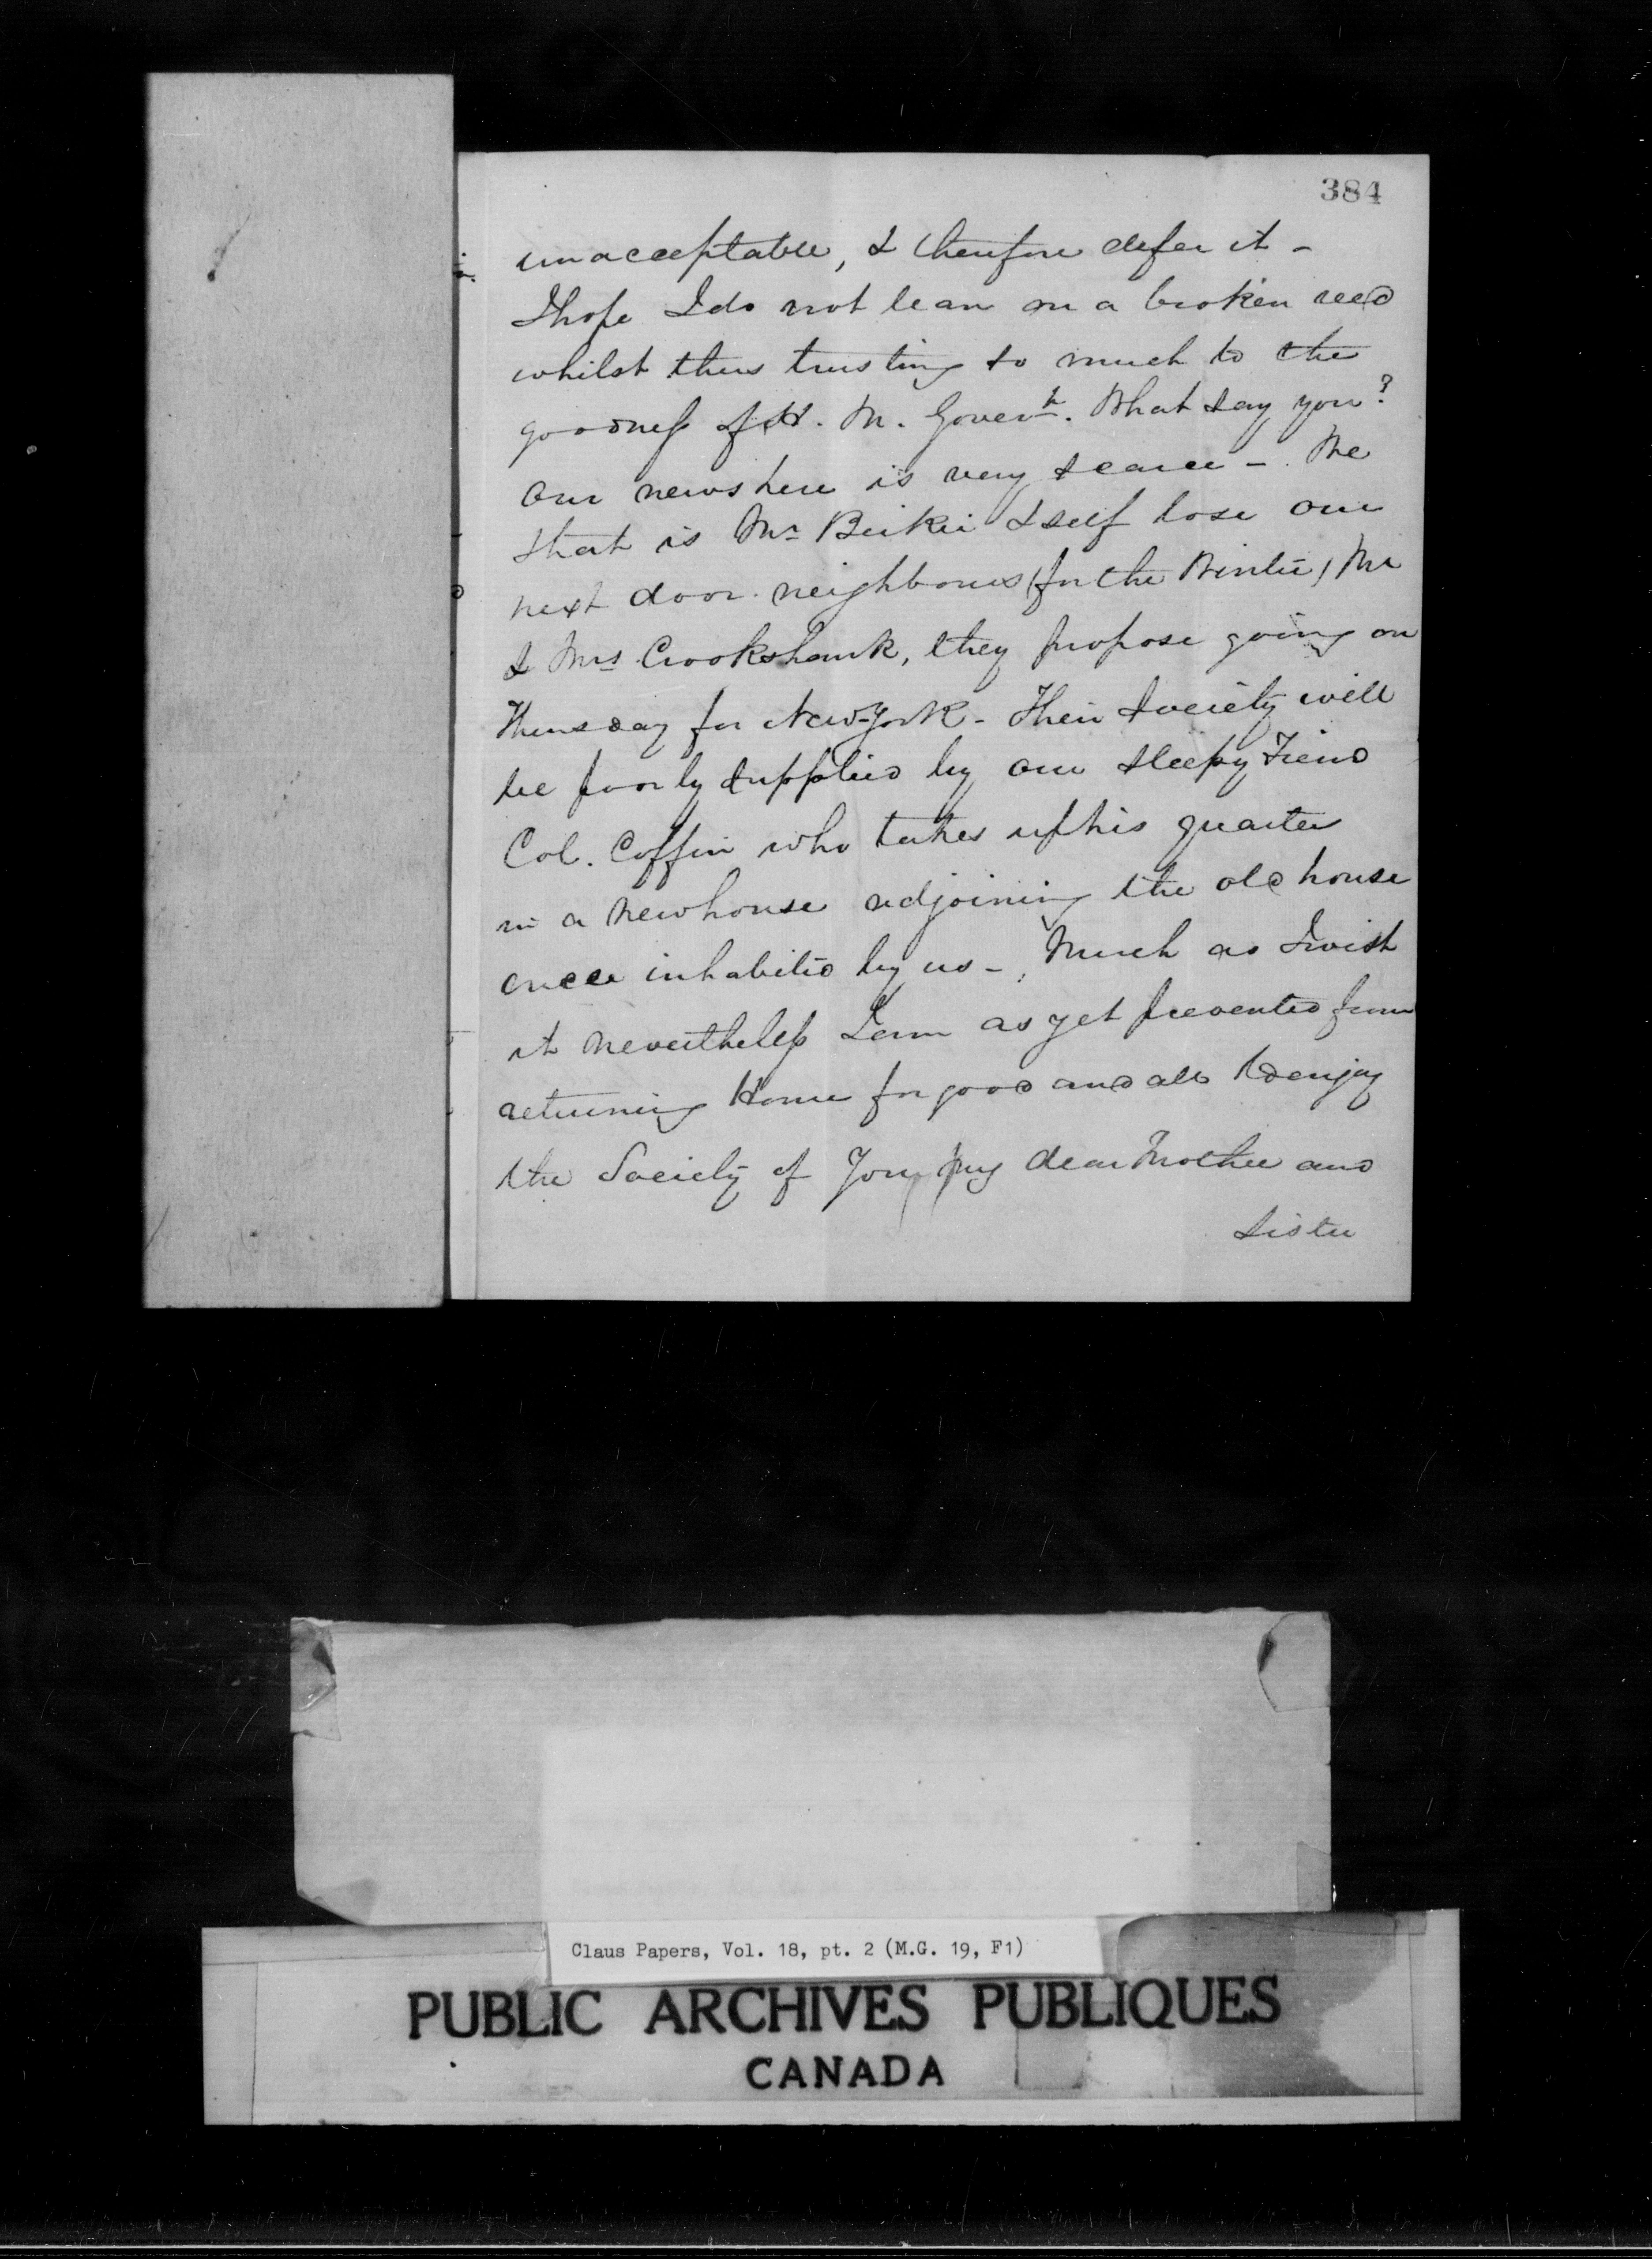 384
unacceptable, & therefore defer it -
I hope I do not lean on a broken reed
whilst thus trusting so much to the
goodness of H. M. Govern.t What say you?
Our news here is very scarce - We
that is Mr Beikie & self lose our
next door neighbours (for the Winter) Mr
& Mrs Crookshank, they propose going on
Thursday for New-York - Their Society will
be poorly supplied by our sleepy Friend
Col. Coffin who takes up his quarters
in a new house adjoining the old house
once inhabited by us - Much as I wish
it nevertheless I am as yet prevented from
returning Home for good and all to enjoy
the Society of You my dear Mother and
Sister
Claus Papers, Vol. 18, pt. 2 (M.G. 19, F1)
PUBLIC ARCHIVES PUBLIQUES
CANADA